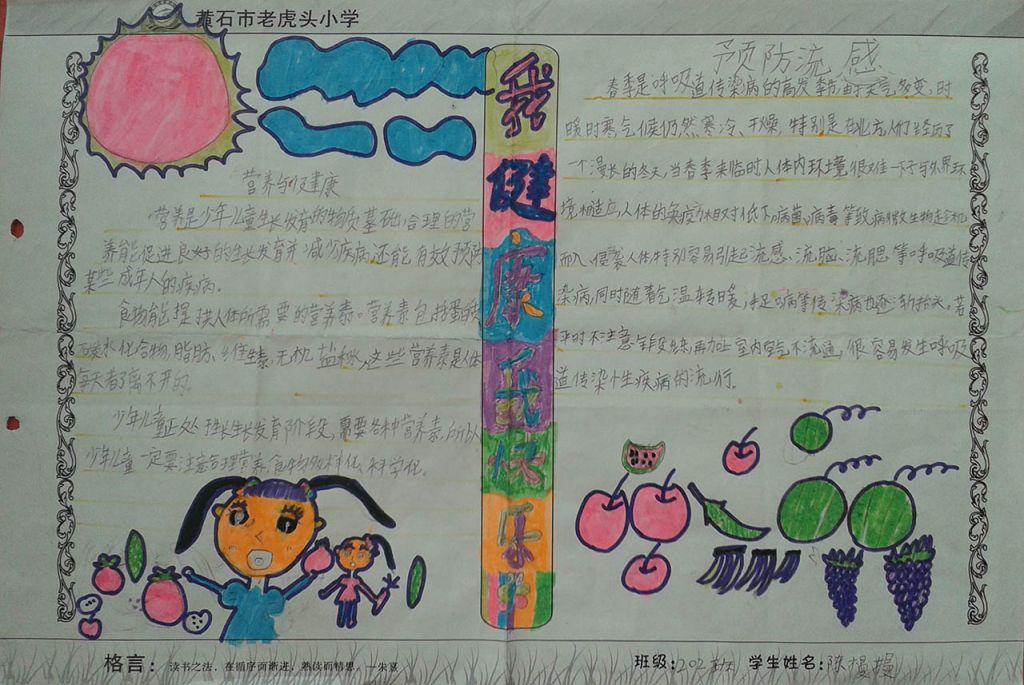 黄石市老虎头小学
我健康我快乐
营养与健康
营养是少年儿童生长发育的物质基础,合理的营
养能促进良好的生长发育并减少疾病,还能有效预防
某些成年人的疾病。
食物能提供人体所需要的营养素。营养素包括蛋
水化合物,脂肪、维生素、无机盐和水,这些营养素是人体
每天者了离不开的。
少年儿童正处于生长发育阶段,需要各种营养素,所以
少年儿童一定要注意合理营养,食物多样化、科学化。
预防流感
春季是呼吸道传染病的高发季节,由于天气多变,时
暖时寒气候仍然寒冷、干燥,特别是在北方人们经历了
一个漫长的冬天,当春季来临时人体内环境很难一下子与外界环
境相适应,人体的免疫力相对低下,病菌、病毒等致病微生物趁机
而入,侵袭人体特别容易引起流感、流脑、流腮等呼吸道传
染病,同时随着气温转暖,手足口病等传染病也逐渐抬头,若
平时不注意锻炼,再加上室内空气不流通,很容易发生呼吸
道传染性疾病的流行。
格言:读书之法,在循序而渐进,熟读而精思。—朱熹
班级:202 学生姓名:陈熳熳